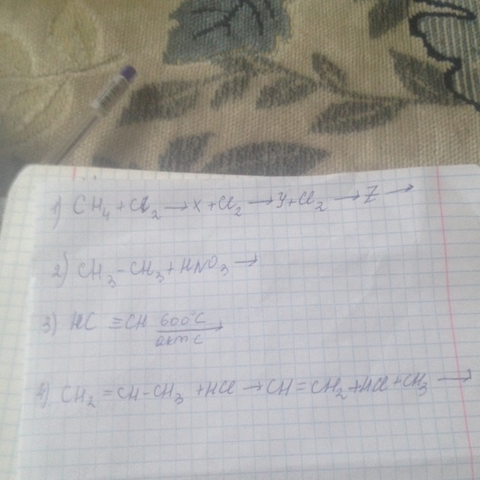 1) CH₄ + Cl₂ → X + Cl₂ → Y + Cl₂ → Z →
2) CH₃-CH₃ + HNO₃ →
3) HC ≡ CH 600°C акт с →
4) CH₂ = CH-CH₃ + HCl → CH = CH₂ + HCl + CH₃ →